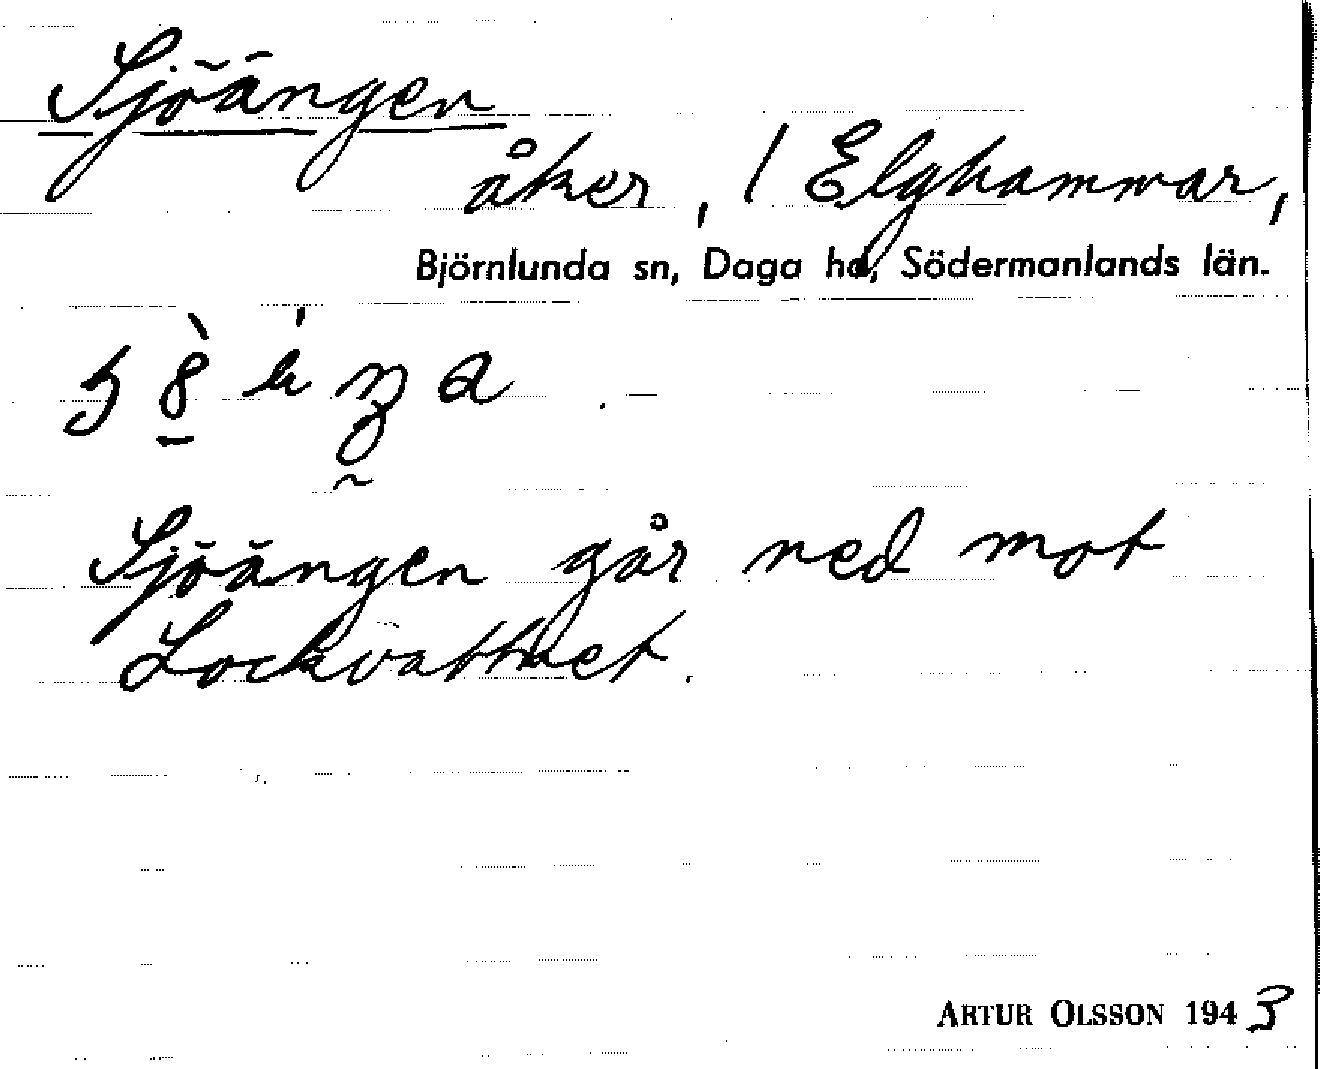 Sjöängen
åker, / Elghammar,
Björnlunda sn, Daga hd, Södermanlands län.
Sjöängen går ned mot
Lockvattnet.
ARTUR OLSSON 1943